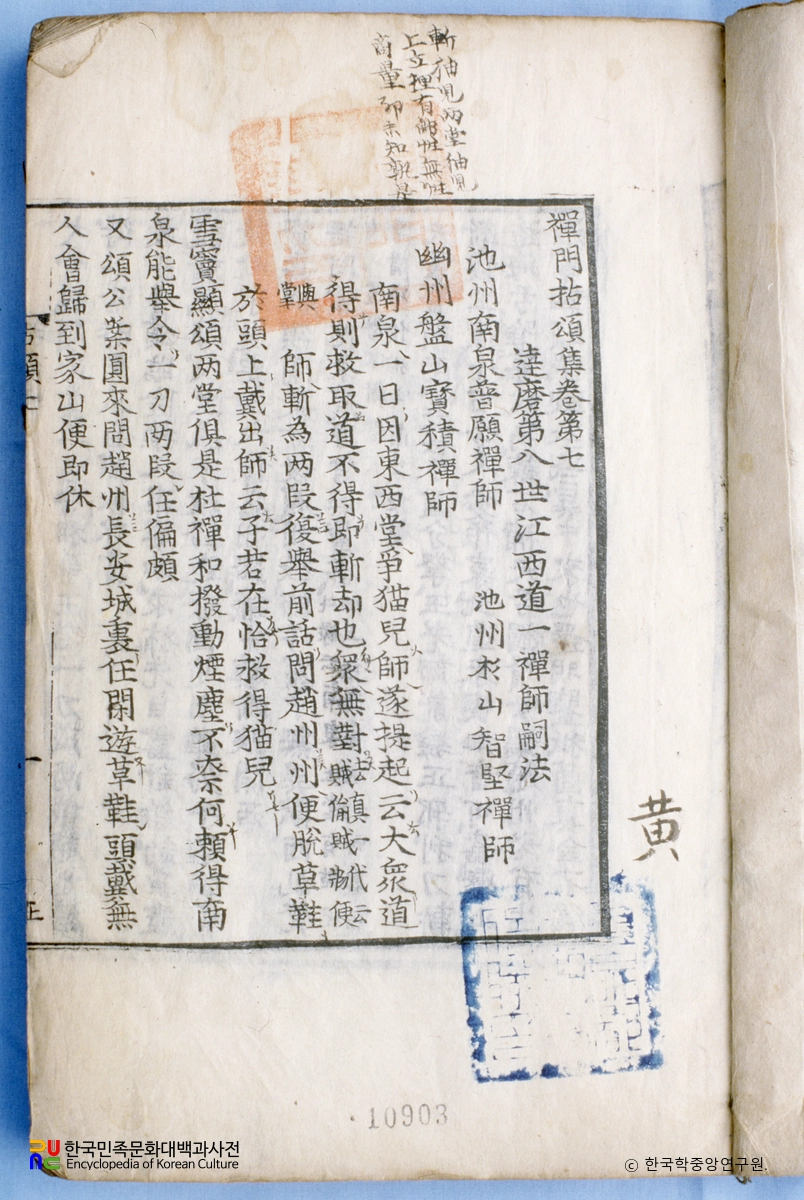 禪門拈頌集卷第七
達磨第八世江西道一禪師嗣法
池州南泉普願禪師 池州杉山智堅禪師
幽州盤山寶積禪師
南泉一日因東西堂爭猫兒師遂提起云大衆道
得則救取道不得即斬却也衆無對
師斬為两段復擧前話問趙州州便脫草鞋
於頭上戴出師云子若在恰救得猫兒
雪竇顯頌两堂俱是杜禪和撥動煙塵不柰何頼得南
泉能擧令一刀两段任偏頗
又頌公案圓來問趙州長安城裏任閑遊草鞋頭戴無
人會歸到家山便即休
黄
10903
한국민족문화대백과사전
Encyclopedia of Korean Culture
ⓒ 한국학중앙연구원.